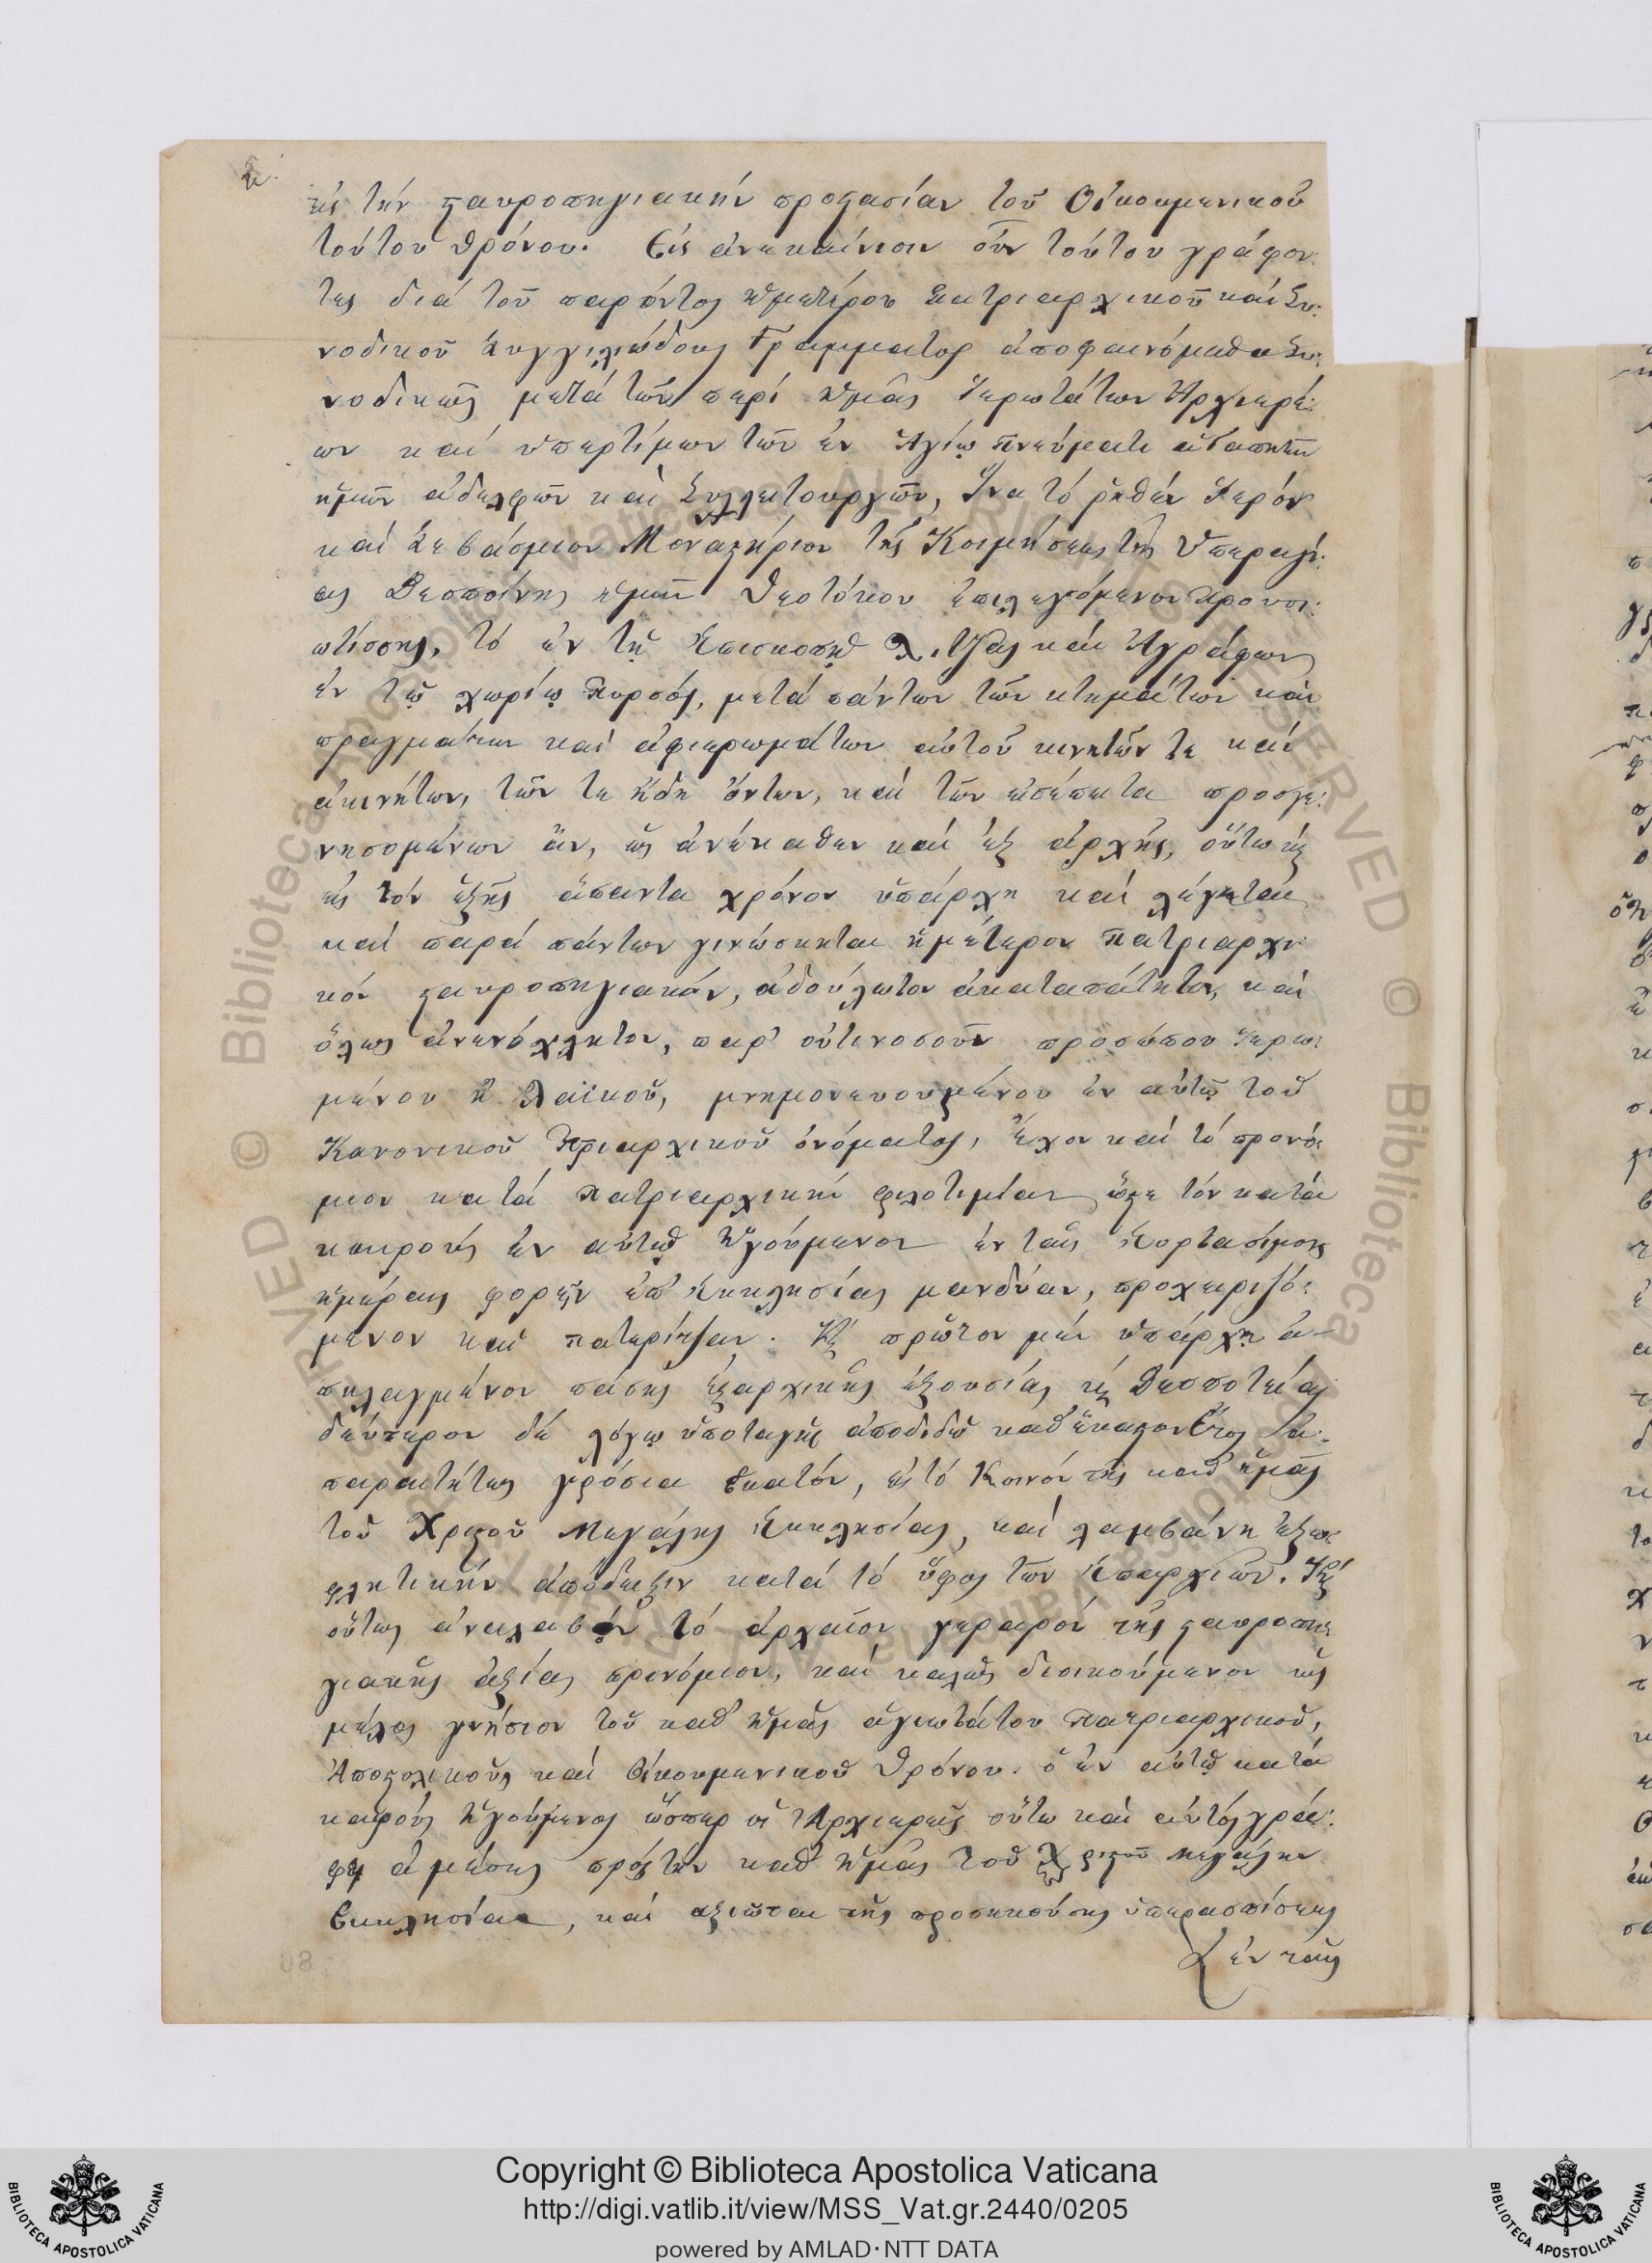 εἰς τὴν σταυροπηγιακὴν προστασίαν τοῦ Οἰκουμενικοῦ
τούτου θρόνου. Εἰς ἀνακαίνισιν οὖν τούτου γράφον:
τες διὰ τοῦ παρόντος ἡμετέρου πατριαρχικοῦ καὶ Συ:
νοδικοῦ Σιγγιλιώδους Γράμματος ἀποφαινόμεθα Συ:
νοδικῶς μετὰ τῶν περὶ ἡμᾶς Ἱερωτάτων Ἀρχιερέ:
ων καὶ ὑπερτίμων τῶν ἐν Ἁγίῳ πνεύματι ἀγαπητῶν
ἡμῶν ἀδελφῶν καὶ Συλλειτουργῶν, Ἵνα τὸ ῥηθὲν Ἱερὸν
καὶ Σεβάσμιον Μοναστήριον τῆς Κοιμήσεως τῆς Ὑπεραγί:
ας Δεσποίνης ἡμῶν Θεοτόκου ἐπιλεγόμενον Προυσι:
ωτίσσης, τὸ ἐν τῇ Ἐπισκοπῇ Λιτζᾶς καὶ Ἀγράφων
ἐν τῷ χωρίῳ Πυρσός, μετὰ πάντων τῶν κτημάτων καὶ
πραγμάτων καὶ ἀφιερωμάτων αὐτοῦ κινητῶν τε καὶ
ἀκινήτων, τῶν τε ἤδη ὄντων, καὶ τῶν εἰσέπειτα προσγε:
νησομένων ἂν, ὡς ἀνέκαθεν καὶ ἐξ ἀρχῆς, οὕτω κ
εἰς τὸν ἑξῆς ἅπαντα χρόνον ὑπάρχῃ καὶ λέγηται
καὶ παρὰ πάντων γινώσκηται ἡμέτερον πατριαρχι
κὸν σταυροπηγιακόν, ἀδούλωτον ἀκαταπάτητον, καὶ
ὅλως ἀνενόχλητον, παρ' οὑτινοσοῦν προσώπου Ἱερω:
μένου ἢ λαϊκοῦ, μνημονευουμένου ἐν αὐτῷ τοῦ
Κανονικοῦ Πριαρχικοῦ ὀνόματος, Ἔχον καὶ τὸ προνό:
μιον κατὰ πατριαρχικὴν φιλοτιμίαν ὥστε τὸν κατὰ
καιροὺς ἐν αὐτῷ Ἡγούμενον ἐν ταῖς Ἑορτασίμοις
ἡμέραις φορεῖν ἐπ' Ἐκκλησίας μανδύαν, προχειριζό:
μενον καὶ πατερίτζαν. Κ πρῶτον μὲν ὑπάρχῃ ἀ-
πηλαγμένον πάσης ἐξαρχικῆς ἐξουσίας κ Δεσποτείας
δεύτερον δὲ λόγῳ ὑποταγῆς ἀποδιδῷ καθ' ἕκαστον Ἔτος ἀ-
παραιτήτως γρόσια ἑκατόν, εἰς τὸ Κοινὸν τῆς καθ' ἡμᾶς
τοῦ Χριστοῦ Μεγάλης Ἐκκλησίας, καὶ λαμβάνῃ ἐξω:
φλητικὴν ἀπόδειξιν κατὰ τὸ ὕφος τῶν Ἐπαρχιῶν. Κ
οὕτως ἀναλαβὸν τὸ ἀρχαῖον γεραρὸν τῆς σταυροπη:
γιακῆς ἀξίας προνόμιον, καὶ καλῶς διοικούμενον ὡς
μέλος γνήσιον τοῦ καθ' ἡμᾶς ἁγιωτάτου Πατριαρχικοῦ,
Ἀποστολικοῦ, καὶ Οἰκουμενικοῦ Θρόνου. ὁ ἐν αὐτῷ κατὰ
καιροὺς Ἡγούμενος ὥσπερ οἱ Ἀρχιερεῖς οὕτω καὶ αὐτὸς γρά:
φῃ ἀμέσως πρὸς τὴν καθ' ἡμᾶς τοῦ Χριστοῦ Μεγάλην
Ἐκκλησίαν, καὶ ἀξιῶται τῆς προσηκούσης ὑπερασπίσεως
ἐν ταῖς
Copyright © Biblioteca Apostolica Vaticana
http://digi.vatlib.it/view/MSS_Vat.gr.2440/0205
powered by AMLAD·NTT DATA
BIBLIOTECA APOSTOLICA VATICANA
BIBLIOTECA APOSTOLICA VATICANA